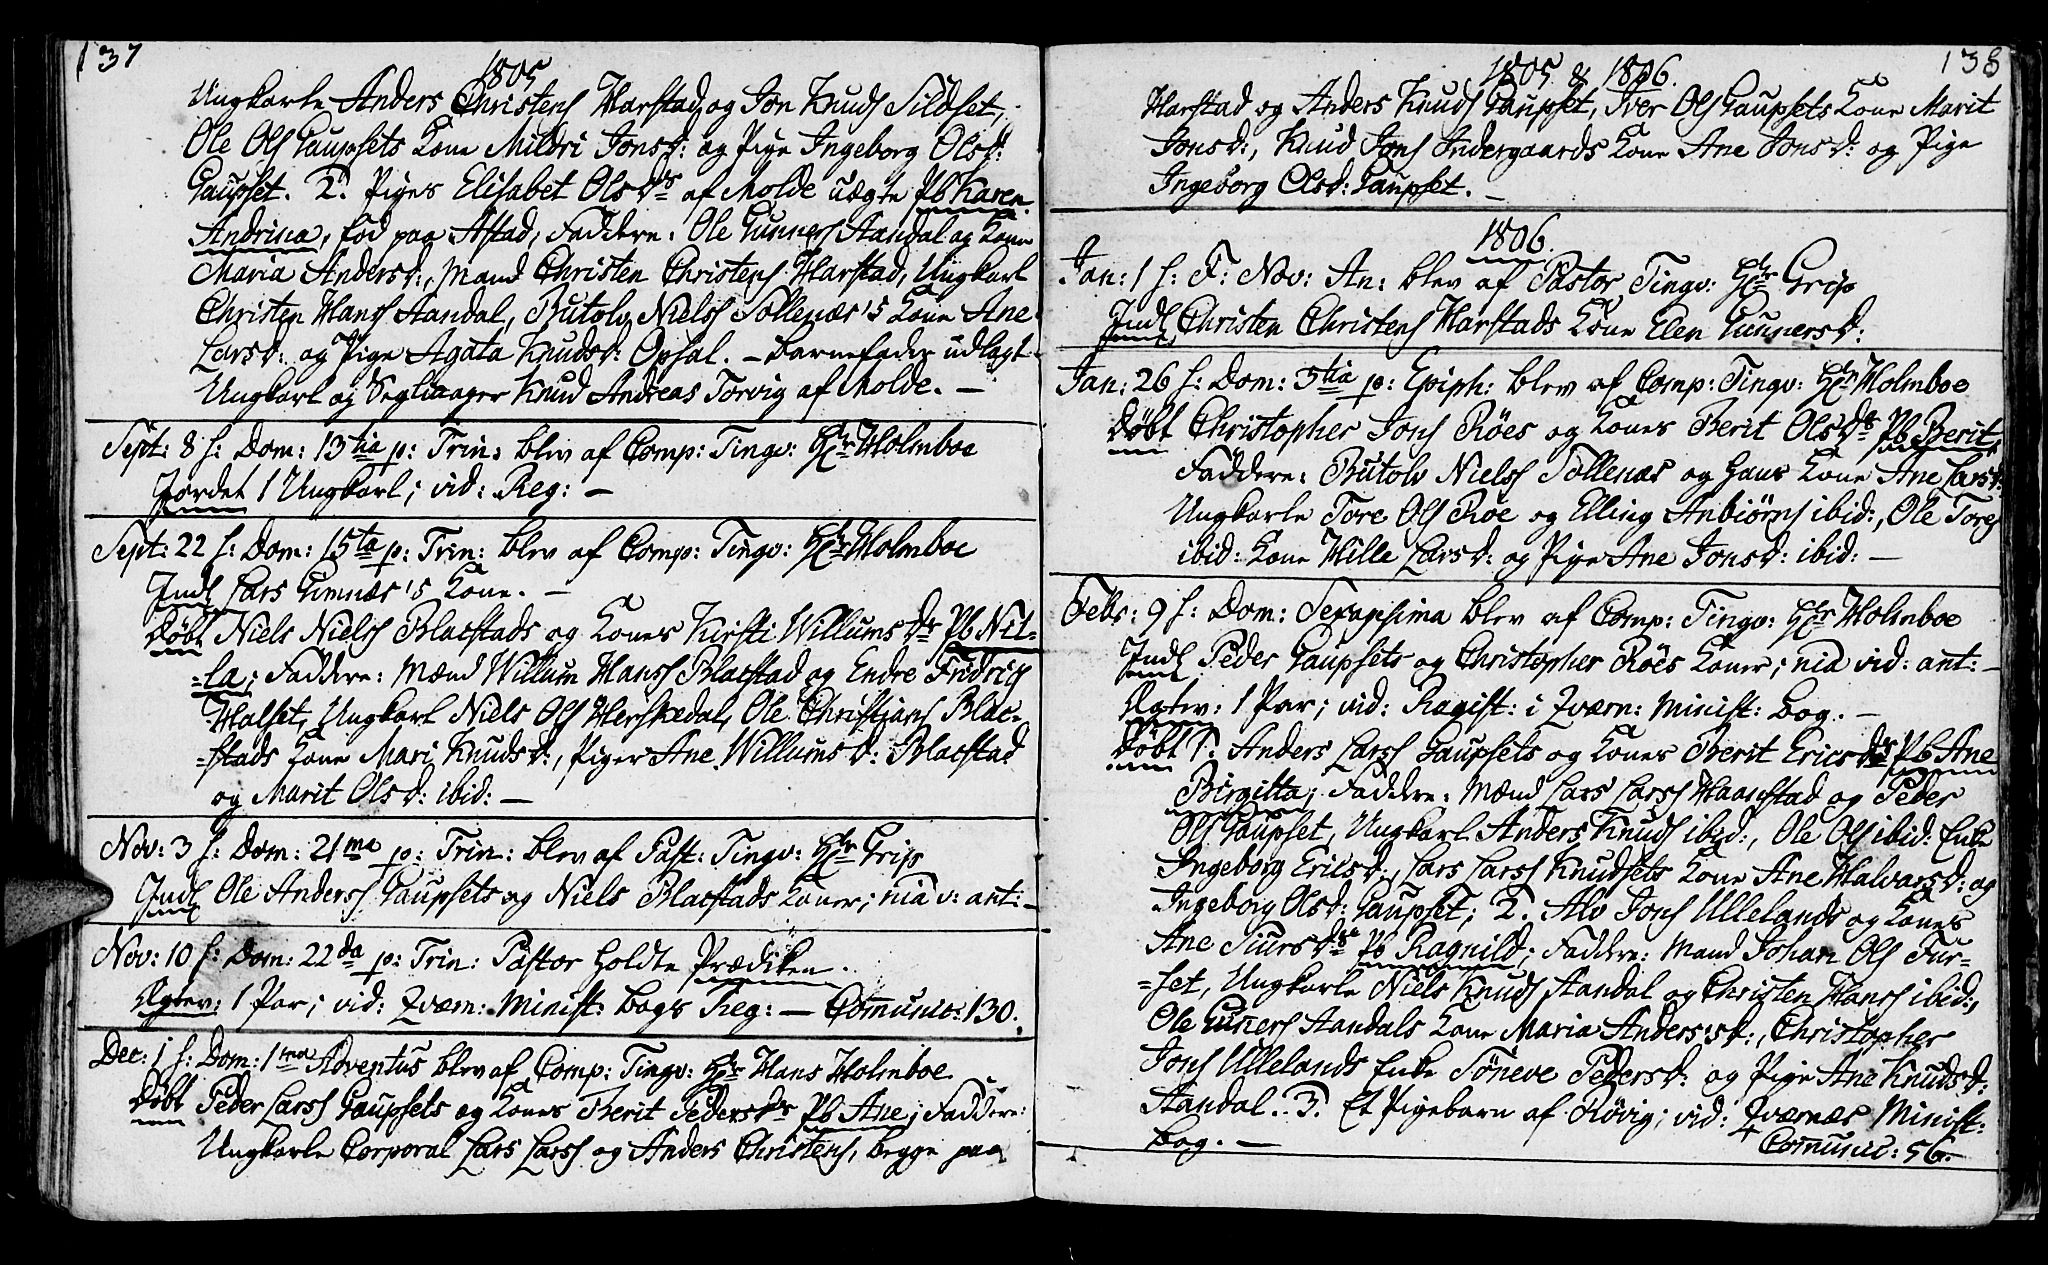 137
1805
Ungkarle Anders Christens Harstad, og Jon Knuds Sildset,
Ole Ols Gaupsets Kone Mildri Jonsd: og Pige Ingeborg Olsd:
Gaupset. 2. Piges Elisabet Olsdr af Molde uægte Pb Karen
Andrina, fød paa Astad, Faddere: Ole Gunners Aandal og Kone
Maria Andersd:, Mand Christen Christens Harstad, Ungkarl
Christen Hans Aandal, Butolv Niels Tollenæs's Kone Ane
Larsd: og Pige Agata Knudsd: Opsal. – Barnefader udlagt
Ungkarl og Seglmager Knud Andreas Torvig af Molde. –
Sept: 8 h: Dom: 13tia p: Trin: blev af Comp: Tingv: Hr Holmboe
Jordet 1 Ungkarl; vid: Reg: –
Sept: 22 h: Dom: 15ta p: Trin: blev af Comp: Tingv: Hr Holmboe
Indl Lars Gimnæs's Kone. –
Døbt Niels Niels Blacstads og Kones Kirsti Willumsdr Pb Nil-
=la; Faddere: Mænd Willum Hans Blacstad og Endre Fridrics
Halset, Ungkarl Niels Ols Herskedal, Ole Christians Blac-
=stads Kone Mari Knudsd:, Piger Ane Willumsd: Blacstad
og Marit Olsd: ibid: –
Nov: 3 h: Dom: 21ma p: Trin: blev af Past: Tingv: Hr Grip
Indl Ole Anders Gaupsets og Niels Blacstads Koner; nia v: ant: –
Nov: 10 h: Dom: 22da p: Trin: Pastor holdte Prædiken.
Ægtev: 1 Par; vid: Qværn: Minist: bogs Reg: – Communic: 130.
Dec: 1 h: Dom: 1ma Adventus blev af Comp: Tingv: Hr Hans Holmboe
Døbt Peder Lars Gaupsets og Kones Berit Pedersdr Pb Ane; Faddere:
Ungkarle Corporal Lars Lars og Anders Christens, begge paa
138
1805 & 1806.
Harstad og Anders Knuds Gaupset, Iver Ols Gaupsets Kone Marit
Jonsd:, Knud Jons Indergaards Kone Ane Jonsd: og Pige
Ingeborg Olsd: Gaupset. –
1806.
Jan: 1 h: F: Nov: An: blev af Pastor Tingv: Hr Grip
Indl Christen Christens Harstads Kone Elen Gunnersd:
Jan: 26 h: Dom: 3tia p: Epiph: blev af Comp: Tingv: Hr Holmboe
Døbt Christopher Jons Röes og Kones Berit Olsdr Pb Berit,
Faddere: Butolv Niels Tollenæs og hans Kone Ane Larsd:
Ungkarle Tore Ols Röe og Elling Anbiörns ibid:, Ole Tores
ibid: Kone Hille Larsd: og Pige Ane Jonsd: ibid: –
Febr: 9 h: Dom: Sexagsima blev af Comp: Tingv: Hr Holmboe
Indl Peder Gaupsets og Christopher Röes Koner; nia vid: ant: –
Ægtev: 1 Par; vid: Regist: i Qværn: Minist: bog. –
Døbt 1. Anders Lars Gaupsets og Kones Berit Ericsdr Pb Ane
Birgitta; Faddere: Mænd Lars Lars Haanstad og Peder
Ols Gaupset, Ungkarl Anders Knuds ibid:, Ole Ols ibid: Enke
Ingeborg Ericsd:, Lars Lars Knudsets Kone Ane Halvarsd: og
Ingeborg Olsd: Gaupset; 2. Alv Jons Ullelands og Kones
Ane Siursdr Pb Ragnild; Faddere: Mand Johan Ols Fur-
=set, Ungkarle Niels Knuds Aandal og Christen Hans ibid:,
Ole Gunners Aandals Kone Maria Andersd:, Christopher
Jons Ullelands Enke Söneve Pedersd: og Pige Ane Knudsd:
Aandal. 3. Et Pigebarn af Rövig; vid: Qværnæs Minist:
bog. –
Communic: 56.